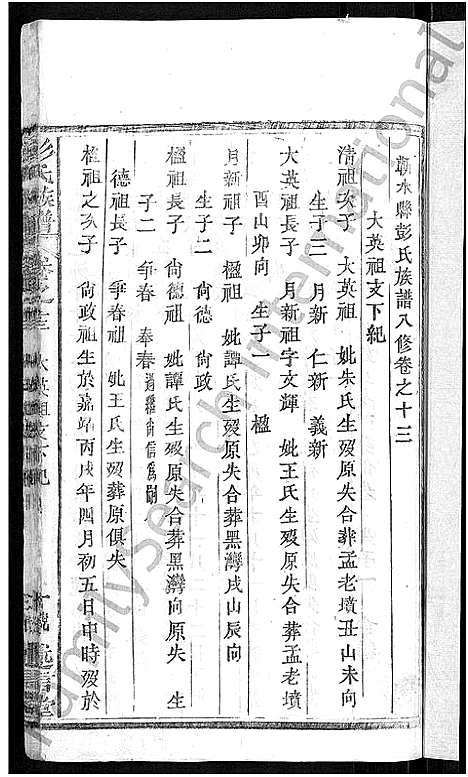 蘄水縣彭氏族譜八修卷之十三
大英祖支下紀
清祖次子　大英祖　妣朱氏生歿原失合葬孟老墳丑山未向
生子三　月新　仁新　義新
大英祖長子　月新祖字文輝　妣王氏生歿原失合葬孟老墳
酉山卯向　生子一　楹
月新祖子　楹祖　妣譚氏生歿原失合葬黑灣戌山辰向
生子二　尙德　尙政
楹祖長子　尙德祖　妣譚氏生歿原失合葬黑灣向原失　生
子二　爭春　奉春
德祖長子　爭春祖　妣王氏生歿葬原俱失
楹祖之次子　尙政祖生於嘉靖丙戌年四月初五日申時歿於
彭氏族譜　卷之十三　大英祖支下紀
FamilySearch International